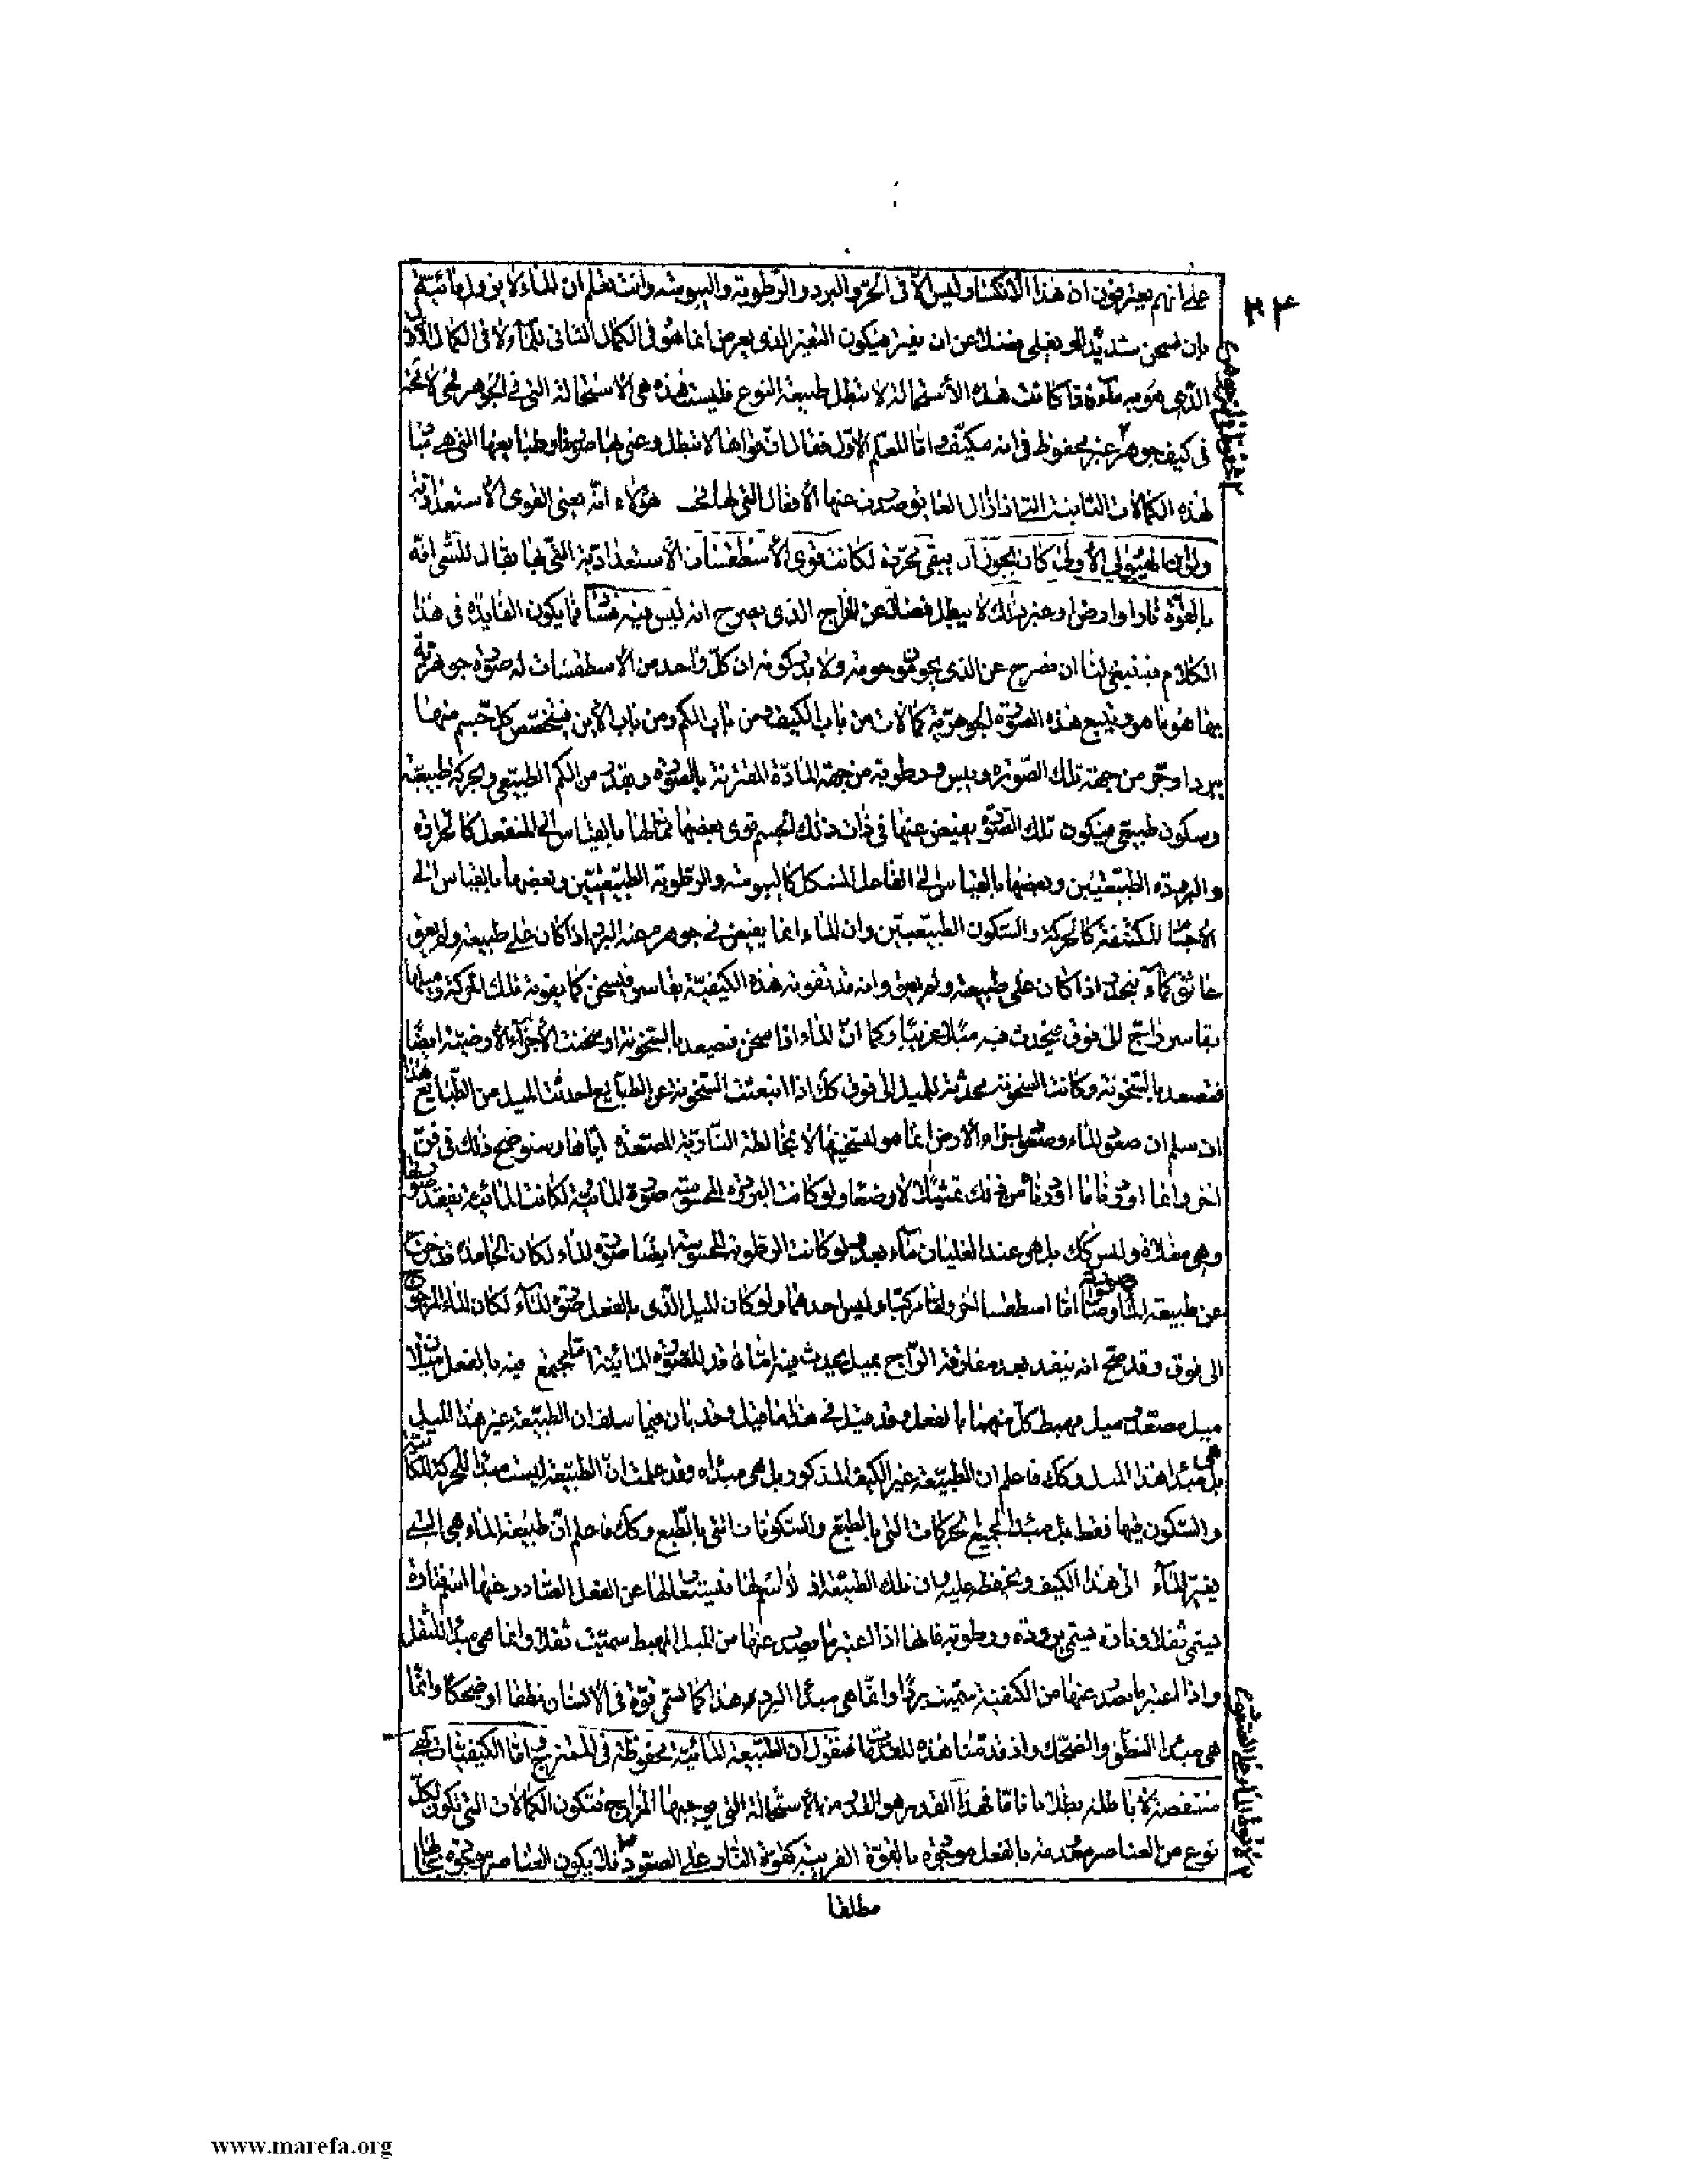 ٢٤
على انهم يعترفون ان هذا الانكسار ليس الا فى الحر والبرد والرطوبة واليبوسة وانت تعلم ان الماء لا يزول مائيته
بان سخن شديدا او يغلى فضلا عن ان يفتر فيكون التغير الذى يعرض انما هو فى الكمال الثانى للماء لا فى الكمال الاول
الذى هو به ماء فاذا كانت هذه الاستحالة لا تبطل طبيعة النوع فليست هذه هى الاستحالة التى فى الجوهر فهى لا محة
فى كيف جوهر غير محفوظ فى انه مكيف واما المعلم الاول فقال ان قواها لا تبطل وعنى بها صورها وطبايعها التى هى مبادى
لهذه الكمالات الثانية التى اذا زال العايق صدرت عنها الافعال التى لها هؤلاء انه يعنى القوى الاستعدادية
ولو ان الهيولى الاولى كان يجوز ان يبقى مجردة لكانت قوى الاسطقسات الاستعدادية التى بها يقال للشئ انه
بالقوة نارا وارضا وغير ذلك لا يبطل فضلا عن المزاج الذى يصرح انه ليس فيه فسادا فما يكون الفايدة فى هذا
الكلام فينبغى لنا ان نصرح عن الذى ولا بد كونه ان كل واحد من الاسطقسات له صورة جوهرية
بها هو ما هو ويتبع هذه الصورة الجوهرية كمالات من باب الكيف ومن باب الكم ومن باب الاين فيختص كل جسم منها
ببرد او حر من جهة تلك الصورة ويبس ورطوبة من جهة المادة المقترنة بالصورة وبقدر من الكم الطبيعى وبحركة طبيعية
وسكون طبيعى فيكون تلك الصورة يفيض عنها فى ذات ذلك الجسم قوى بعضها مما لها بالقياس الى المنفعل كالحرارة
والبرودة الطبيعيتين وبعضها بالقياس الى الفاعل المشكل كاليبوسة والرطوبة الطبيعيتين وبعضها بالقياس الى
الاجسام المكتنفة كالحركة والسكون الطبيعيين وان الماء انما يفيض فى جوهره عنه البرد اذا كان على طبيعته ولم يعق
عائق كما انه يتحدر اذا كان على طبيعته ولم يعق وانه قد تفوته هذه الكيفية بقاسر فيسخن كما يفوته تلك الحركة وميلها
بقاسر زاج الى فوق يحدث فيه ميلا غريبا وكما ان الماء اذا سخن فصعد بالسخونة او سخنت الاجزاء الارضية ايضا
فتصعد بالسخونة وكانت السخونة محدثة للميل الى فوق كك اذا انبعثت السخونة عن الطبايع احدثت الميل من الطبايع هذا
ان سلم ان صعود الماء وصعود اجزاء الارض انما هو لتسخينها لا بمخالطة النارية المصعدة اياها وسنوضح ذلك فى فن
اخر وانما اوردنا ما اوردناه من ذلك تمثيلا لا وضعا ولو كانت البرودة المحسوسة صورة المائية لكانت المائية تفقد صورتها
وهى مغلاة وليس كك بل هو عند الغليان ماء بعد ولو كانت الرطوبة المحسوسة ايضا صورة الماء لكان الجامد قد خرج
عن طبيعته المائية وصار اما اسطقسا اخر واما مركبا وليس احدهما ولو كان الميل الذى بالفعل صورة للماء لكان الماء المزجوج
الى فوق وقد صح انه ينفذ بعد مفارقة الزاج بميل يحدث فيه اما فاقد للصورة المائية اما يجتمع فيه بالفعل ميلان
ميل مصعد وميل مهبط كل منهما بالفعل وقد قيل فى هذا ما قيل وقد بان فيما سلف ان الطبيعة غير هذا الميل
بل هى مبدا هذا الميل وكك فاعلم ان الطبيعة غير الكيف المذكور بل هى مبداه وقد علمت ان الطبيعة ليست مبدا للحركة المكانية
والسكون فيها فقط بل مبدا لجميع الحركات التى بالطبع والسكونات التى بالطبع وكك فاعلم ان طبيعة الماء هى التى
يغير الماء الى هذا الكيف ويحفظ عليه وان تلك الطبيعة اذ لا اسم لها فيستعار لها من الفعل الصادر عنها اسم فتارة
يسمى ثقلا وتارة يسمى برودة ورطوبة فانها اذا اعتبر ما يصدر عنها من الميل المهبط سميت ثقلا وانما هى مبدا للثقل
واذا اعتبر ما يصدر عنها من الكيفية سميت بردا وانما هى مبدا البرد وهذا كما يسمى قوة فى الانسان نطقا او ضحكا وانما
هى مبدا النطق والضحك واذ قدمنا هذه المقدمات فنقول ان الطبيعة المائية محفوظة فى الممتزج واما الكيفيات فهى
منتقصة لا باطلة بطلانا تاما فهذا القدر هو القدر من الاستحالة التى يوجبها المزاج فتكون الكمالات التى تكون لكل
نوع من العناصر معدومة بالفعل موجودة بالقوة القريبة كقوة النار على الصعود فلا يكون العناصر موجودة بحالها
مطلقا
www.marefa.org